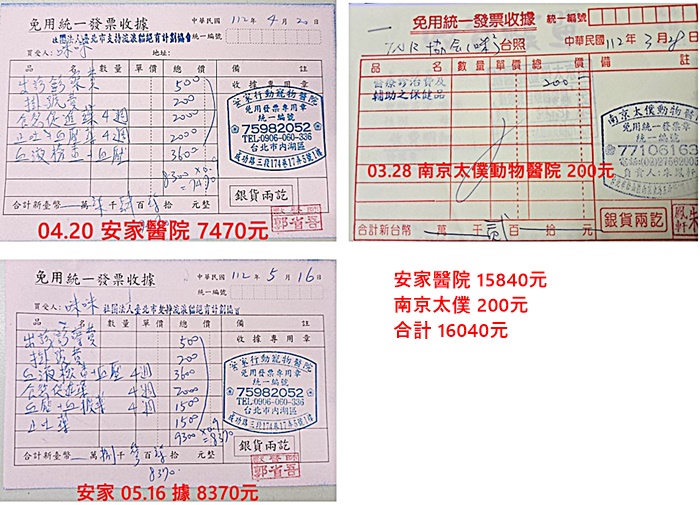 免用統一發票收據
中華民國 112年 4月 20日
社團法人臺北市支持流浪貓絕育計劃協會
統一編號
買受人：咪咪 地址：
品名 數量 單價 總價 備註
出診診察費 500
收據專用章
掛號費 200
食慾促進藥 4週 2000
2000
血液檢查+血壓 3600
8300 ×0.9
7470
安家行動寵物醫院
免用發票專用章
統一編號
75982052
TEL:0906-060-336
台北市內湖區
成功路三段174巷17弄5號1樓
合計新台幣 萬 柒千 肆百 柒拾 元整
銀貨兩訖
郭省吾
04.20 安家醫院 7470元
免用統一發票收據
統一編號
台照
中華民國 112年 3月 28日
品名 數量 單價 總價 備註
醫療診治費及
輔助之保健品
200
南京太僕動物醫院
免用統一發票收據專用章
統一編號
77106163
03.28 南京太僕動物醫院 200元
銀貨兩訖
合計新台幣 萬 千 貳百 拾 元
免用統一發票收據
中華民國 112年 5月 16日
買受人：咪咪 社團法人臺北市支持流浪貓絕育計劃協會
品名 數量 單價 總價 備註
出診診察費 500
收據專用章
掛號費 200
血液檢查+血壓 4週 3600
食慾促進藥 4週 2000
血壓 4週 1500
止吐藥 1500
9300 ×0.9
=8370
安家行動寵物醫院
免用發票專用章
統一編號
75982052
TEL:0906-060-336
台北市內湖區
成功路三段174巷17弄5號1樓
合計新台幣 萬 捌千 參百 柒拾 元整
8370.
銀貨兩訖
郭省吾
安家 05.16 據 8370元
安家醫院 15840元
南京太僕 200元
合計 16040元